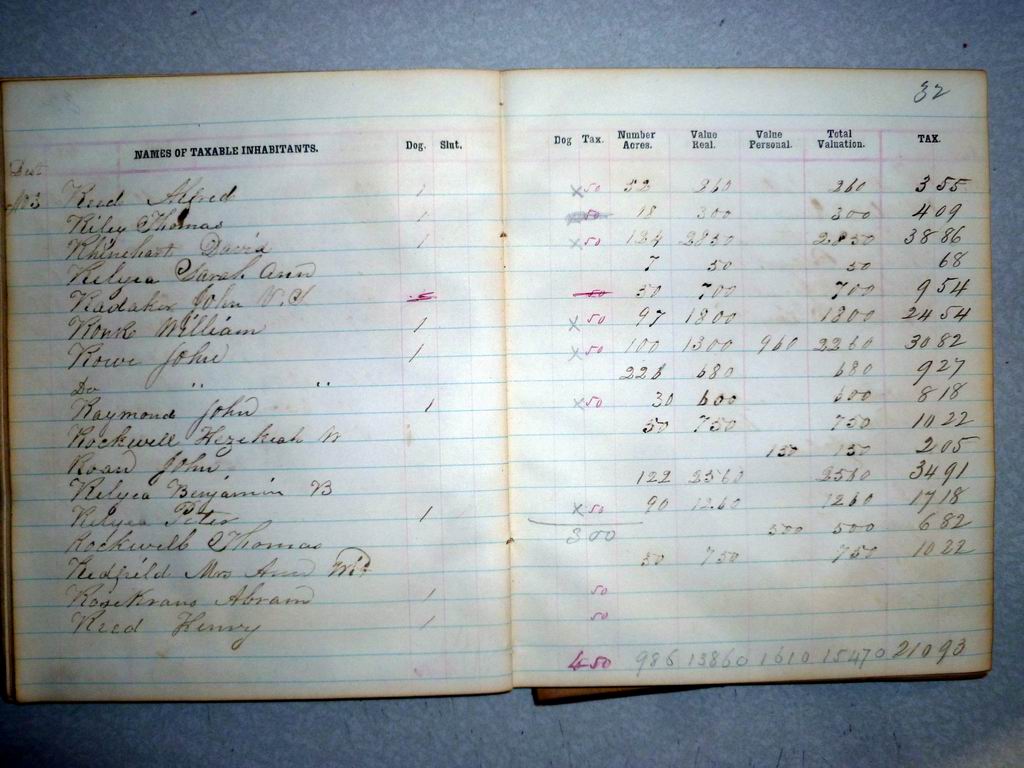 32
NAMES OF TAXABLE INHABITANTS. Dog. Slut. Dog Tax. Number Acres. Value Real. Value Personal. Total Valuation. TAX.
Dist
No 3 Reed Alfred 1 x 50 52 260 260 3 55
Riley Thomas 1 50 18 300 300 4 09
Rhinehart David 1 x 50 134 2850 2850 38 86
Relyea Sarah Ann 7 50 50 68
Radaker John V. S 50 50 700 700 9 54
Ronk William 1 x 50 97 1800 1800 24 54
Rowe John 1 x 50 100 1300 960 2260 30 82
Do " " 226 680 680 9 27
Raymond John 1 x 50 30 600 600 8 18
Rockwell Hezekiah W 50 750 750 10 22
Roan John 150 150 2 05
Relyea Benjamin B 122 2560 2560 34 91
Relyea Peter 1 x 50 90 1260 1260 17 18
Rockwell Thomas 300 500 500 6 82
Redfield Mrs Ann 50 750 750 10 22
Rosekrans Abram 1 50
Reed Henry 1 50
4 50 986 13860 1610 15470 210 93